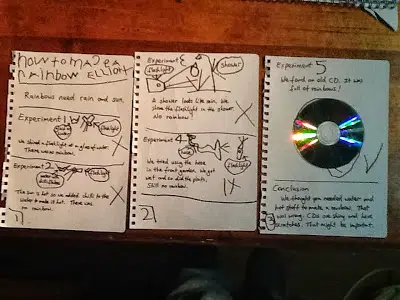 how to make a
rainbow ELLIOTT
Rainbows need rain and sun.
Experiment 1
flashlight
We shined a flashlight at a glass of water.
There was no rainbow.
Experiment 2
flashlight
The sun is hot so we added chili to the
water to make it hot. There was
no rainbow.
1
Experiment 3
flashlight
shower
A shower looks like rain. We
shone the flashlight in the shower.
No rainbow!
Experiment 4
hose
flashlight
We tried using the hose
in the front garden. We got
wet and so did the plants.
Still no rainbow.
2
Experiment 5
We found an old CD. It was
full of rainbows!
Conclusion
We thought you needed water and
hot stuff to make a rainbow. That
was wrong. CDs are shiny and have
scratches. That might be important.
3